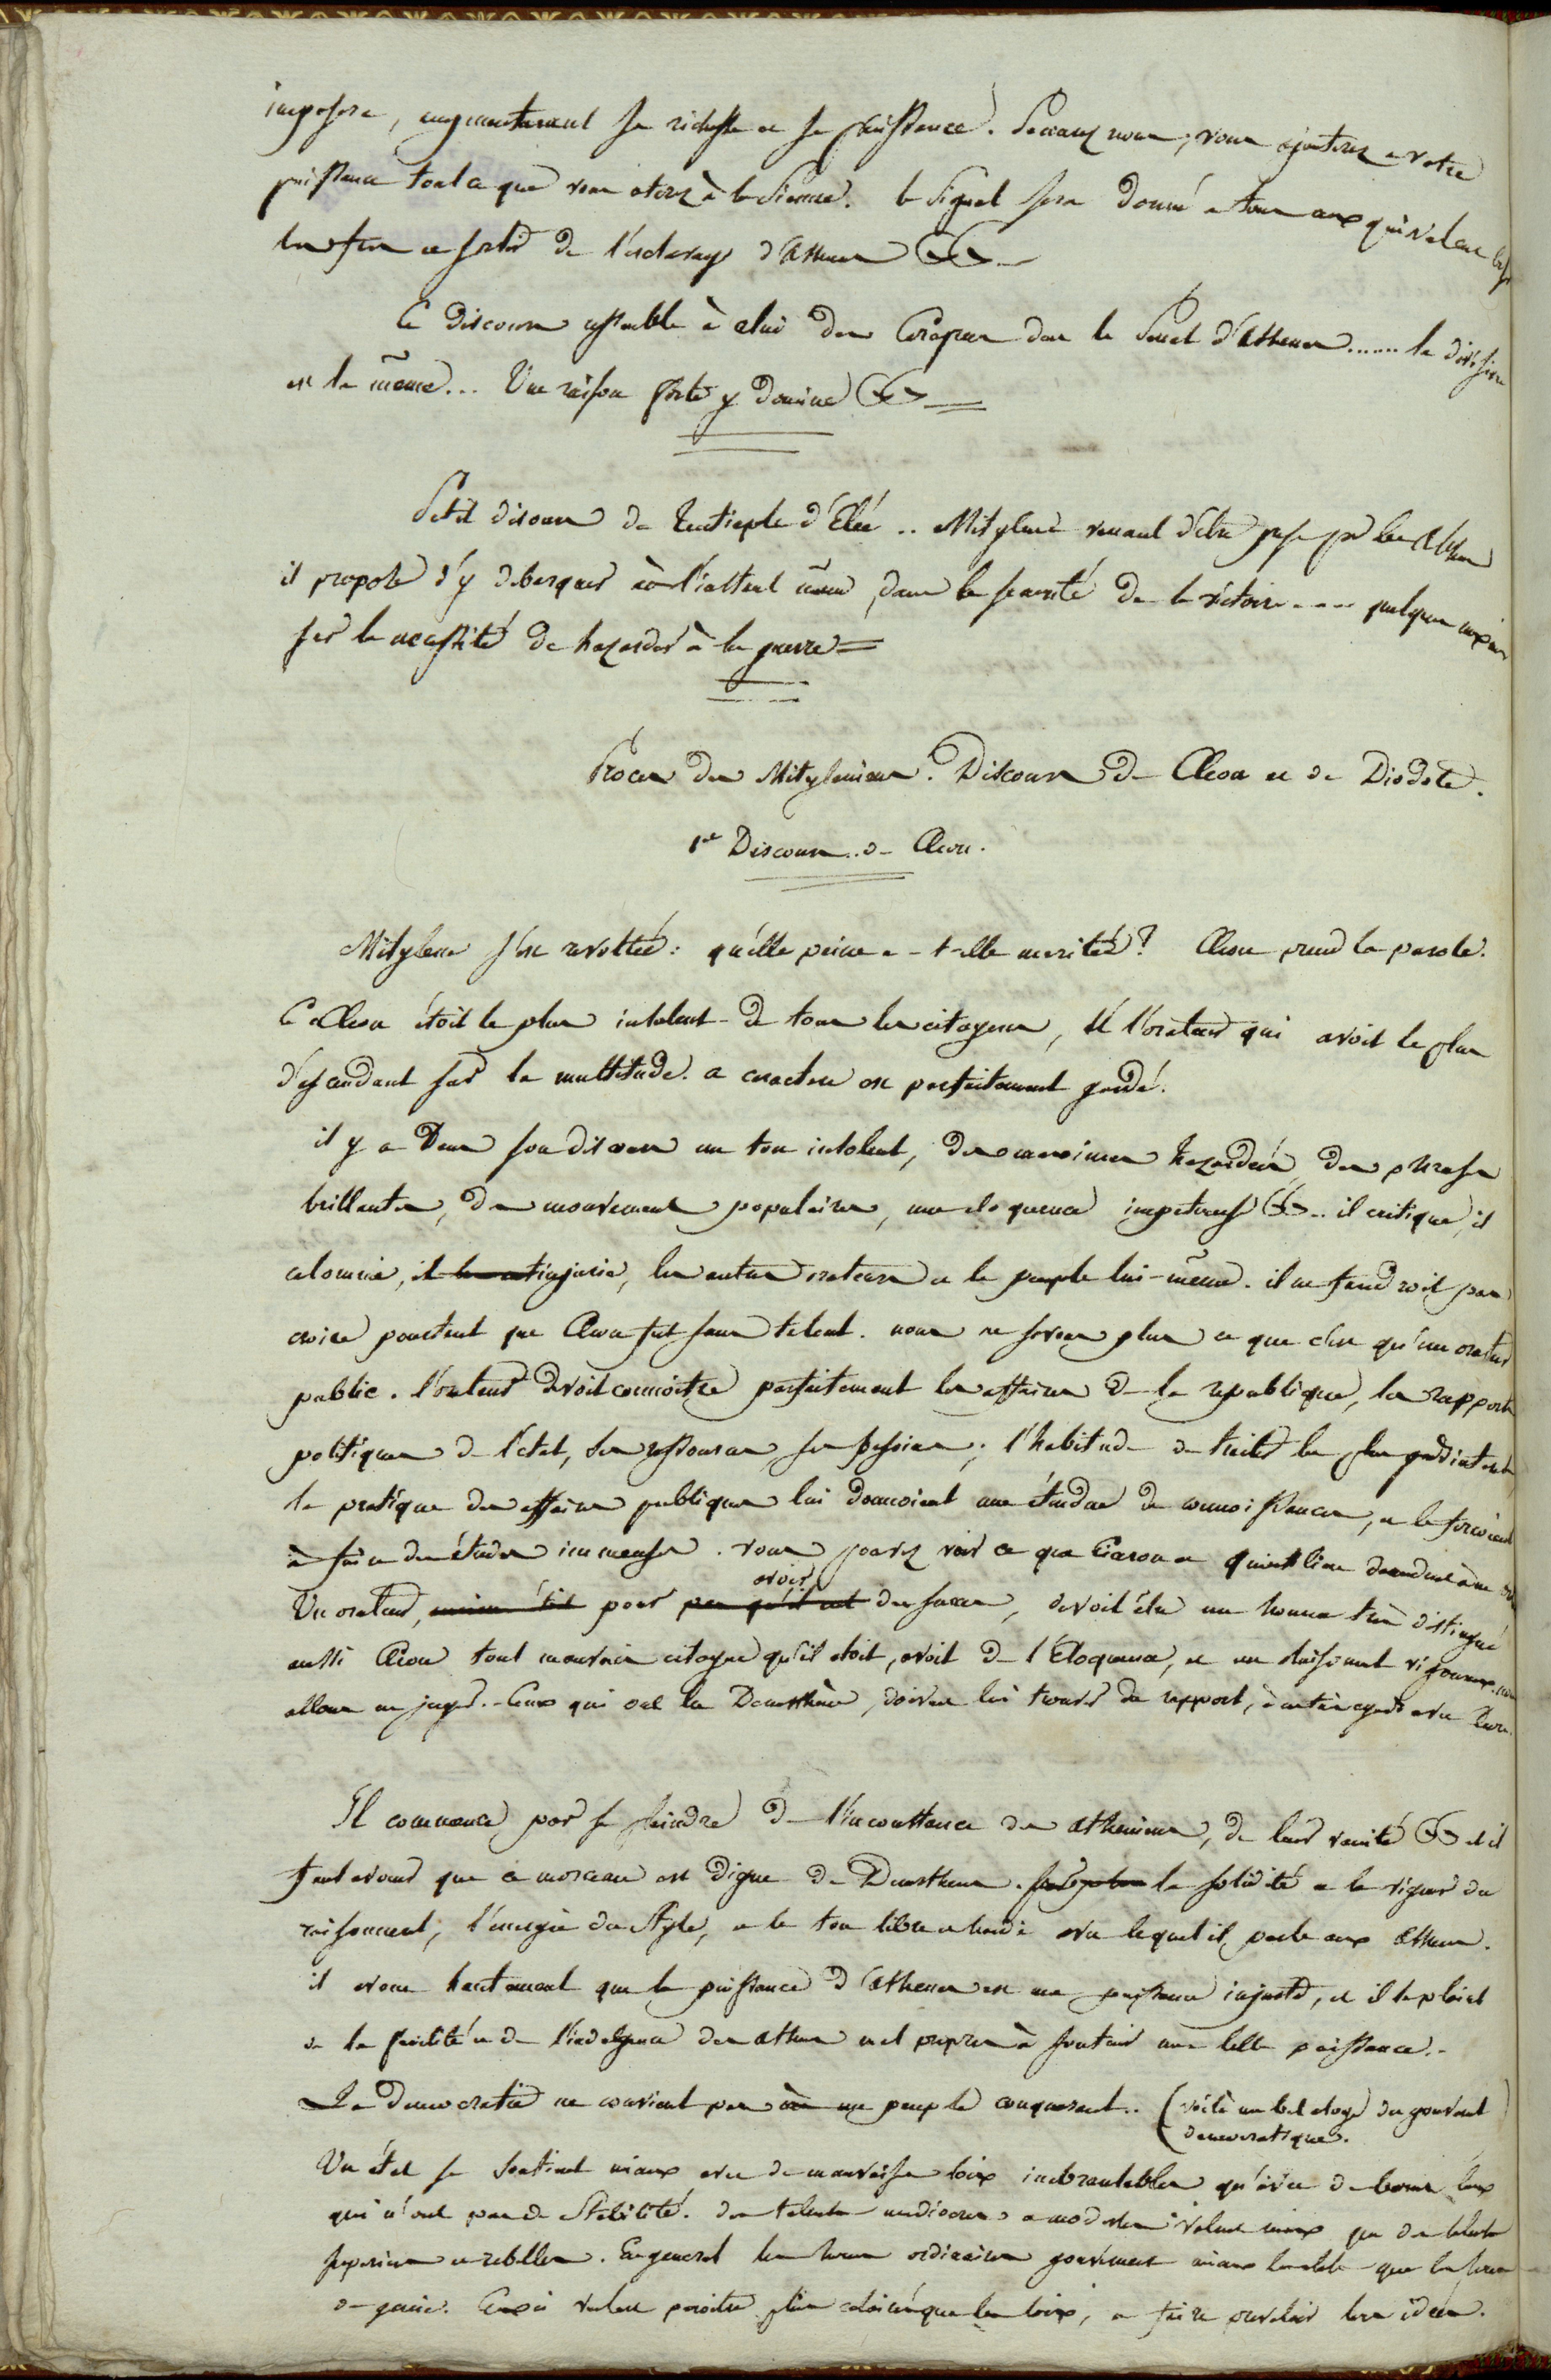 imposera, augmenteront sa richesse et sa puissance. Secourez nous, vous ajouterez a votre
puissance tout ce que vous oterez à la sienne. le signal sera donné a tous ceux qui veulent
et sortir de l'esclavage d'Athenes
Ce discours ressemble à celui des Corcyreens dans le Senat d'Athenes....... la division
est la même... Une raison forte y domine
Petit discours de Teutiaple d'Elée .. Mitylene venant d'etre prise par les Athen
il propose d'y debarquer à l'instant même, dans la securité de la victoire .... quelques maximes
sur la necessité de hazarder à la guerre =
Procès des Mityleniens. Discours de Cleon et de Diodote.
1er Discours .. de Cleon.
Mitylene s'est revoltée : qu'elle peine a-t-elle meritée ? Cleon prend la parole.
Ce Cleon étoit le plus insolent de tous les citoyens, et l'orateur qui avoit le plus
d'ascendant sur la multitude. ce caractere est parfaitement gardé.
il y a dans son discours un ton insolent, des maximes hazardées, des phrases
brillantes, des mouvements populaires, une eloquence impetueuse .. il critique, il
calomnie, injurie, les autres orateurs et le peuple lui-même. il ne faudroit pas
croire pourtant que Cleon fut sans talent. nous ne savons plus ce que c'est qu'un orateur
public. l'orateur devoit connoitre parfaitement les affaires de la republique, les rapports
politiques de l'etat, ses ressources, ses besoins ; l'habitude de traiter les plus grds interets
la pratique des affaires publiques lui donnoient une étendue de connoissances, et le forcoient
à faire des études immenses. vous pouvez voir ce que Ciceron et Quintilien demandent à un
Un orateur, pour avoir des succes, devoit être un homme très distingué
aussi Cleon tout mauvais citoyen qu'il etoit, avoit de l'Eloquence, et un raisonnement vigoureux, nous
allons en juger. - Ceux qui ont lu Demosthène, doivent lui trouver du rapport, à certains egards avec Cleon.
Il commence par se plaindre de l'inconstance des Atheniens, de leur vanité et il
faut avouer que ce morceau est digne de Demosthene. la solidité et la vigueur du
raisonnement, l'energie du style, et le ton libre et hardi avec lequel il parle aux Athen.
il avoue hautement que la puissance d'Athenes est une puissance injuste, et il se plaint
de la facilité et de l'indulgence des Athen mal propres à soutenir une telle puissance. -
La Democratie ne convient pas à un peuple conquerant .. (voilà un bel eloge du gouvernt
democratique.)
Un état se soutient mieux avec de mauvaises loix inebranlables qu'avec de bonnes loix
qui n'ont pas de stabilité. des talents mediocres et modestes valent mieux que des talents
superieurs et rebelles. En general les hommes ordinaires gouvernent mieux les etats que les hommes
de genie. Ceux ci veulent paroitre plus eclairés que les loix, et faire prevaloir leurs idées.